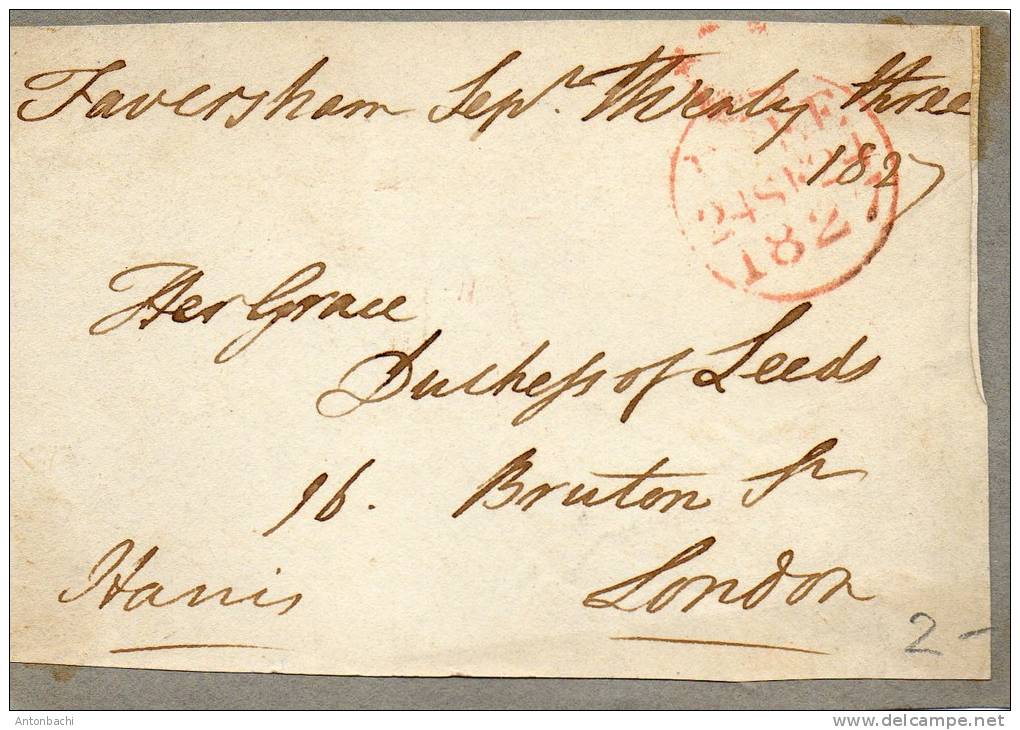 Faversham Sepr. Twenty three
1827
FREE
24 SE 24
1827
Her Grace
Duchess of Leeds
16. Bruton St
Harris London
2-
Antonbachi
www.delcampe.net